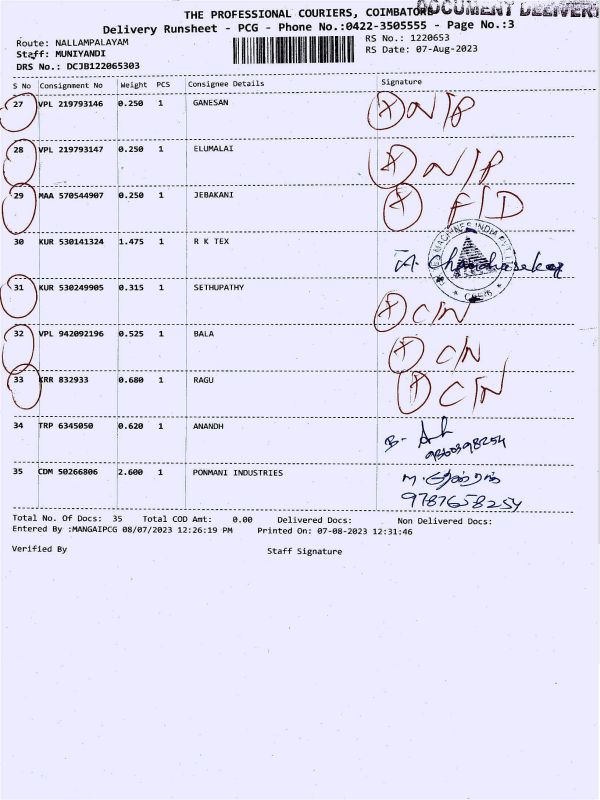 DOCUMENT DELIVERY
THE PROFESSIONAL COURIERS, COIMBATORE
Delivery Runsheet - PCG - Phone No.:0422-3505555 - Page No.:3
Route: NALLAMPALAYAM RS No.: 1220653
Staff: MUNIYANDI RS Date: 07-Aug-2023
DRS No.: DCJB122065303
S No Consignment No Weight PCS Consignee Details Signature
27 VPL 219793146 0.250 1 GANESAN X N/P
28 VPL 219793147 0.250 1 ELUMALAI X N/P
29 MAA 570544907 0.250 1 JEBAKANI X F/D
30 KUR 530141324 1.475 1 R K TEX
31 KUR 530249905 0.315 1 SETHUPATHY X C/N
32 VPL 942092196 0.525 1 BALA X C/N
33 KRR 832933 0.680 1 RAGU X C/N
34 TRP 6345050 0.620 1 ANANDH
35 CDM 50266806 2.600 1 PONMANI INDUSTRIES
9787658254
Total No. Of Docs: 35 Total COD Amt: 0.00 Delivered Docs: Non Delivered Docs:
Entered By :MANGAIPCG 08/07/2023 12:26:19 PM Printed On: 07-08-2023 12:31:46
Verified By Staff Signature